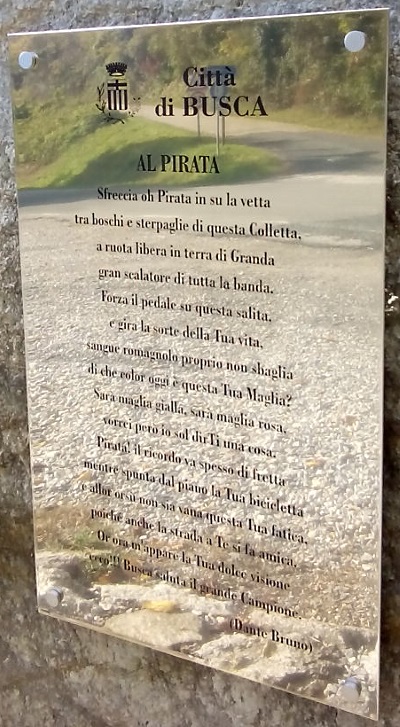 Città
di BUSCA
AL PIRATA
Sfreccia oh Pirata in su la vetta
tra boschi e sterpaglie di questa Colletta,
a ruota libera in terra di Granda
gran scalatore di tutta la banda.
Forza il pedale su questa salita,
e gira la sorte della Tua vita,
sangue romagnolo proprio non sbaglia
di che color oggi è questa Tua Maglia?
Sarà maglia gialla, sarà maglia rosa,
vorrei però io sol dirTi una cosa.
Pirata! il ricordo va spesso di fretta
mentre spunta dal piano la Tua bicicletta
e allor orsù non sia vana questa Tua fatica,
poiché anche la strada a Te si fa amica.
Or ora m'appare la Tua dolce visione
ecco!!! Busca saluta il grande Campione.
(Dante Bruno)